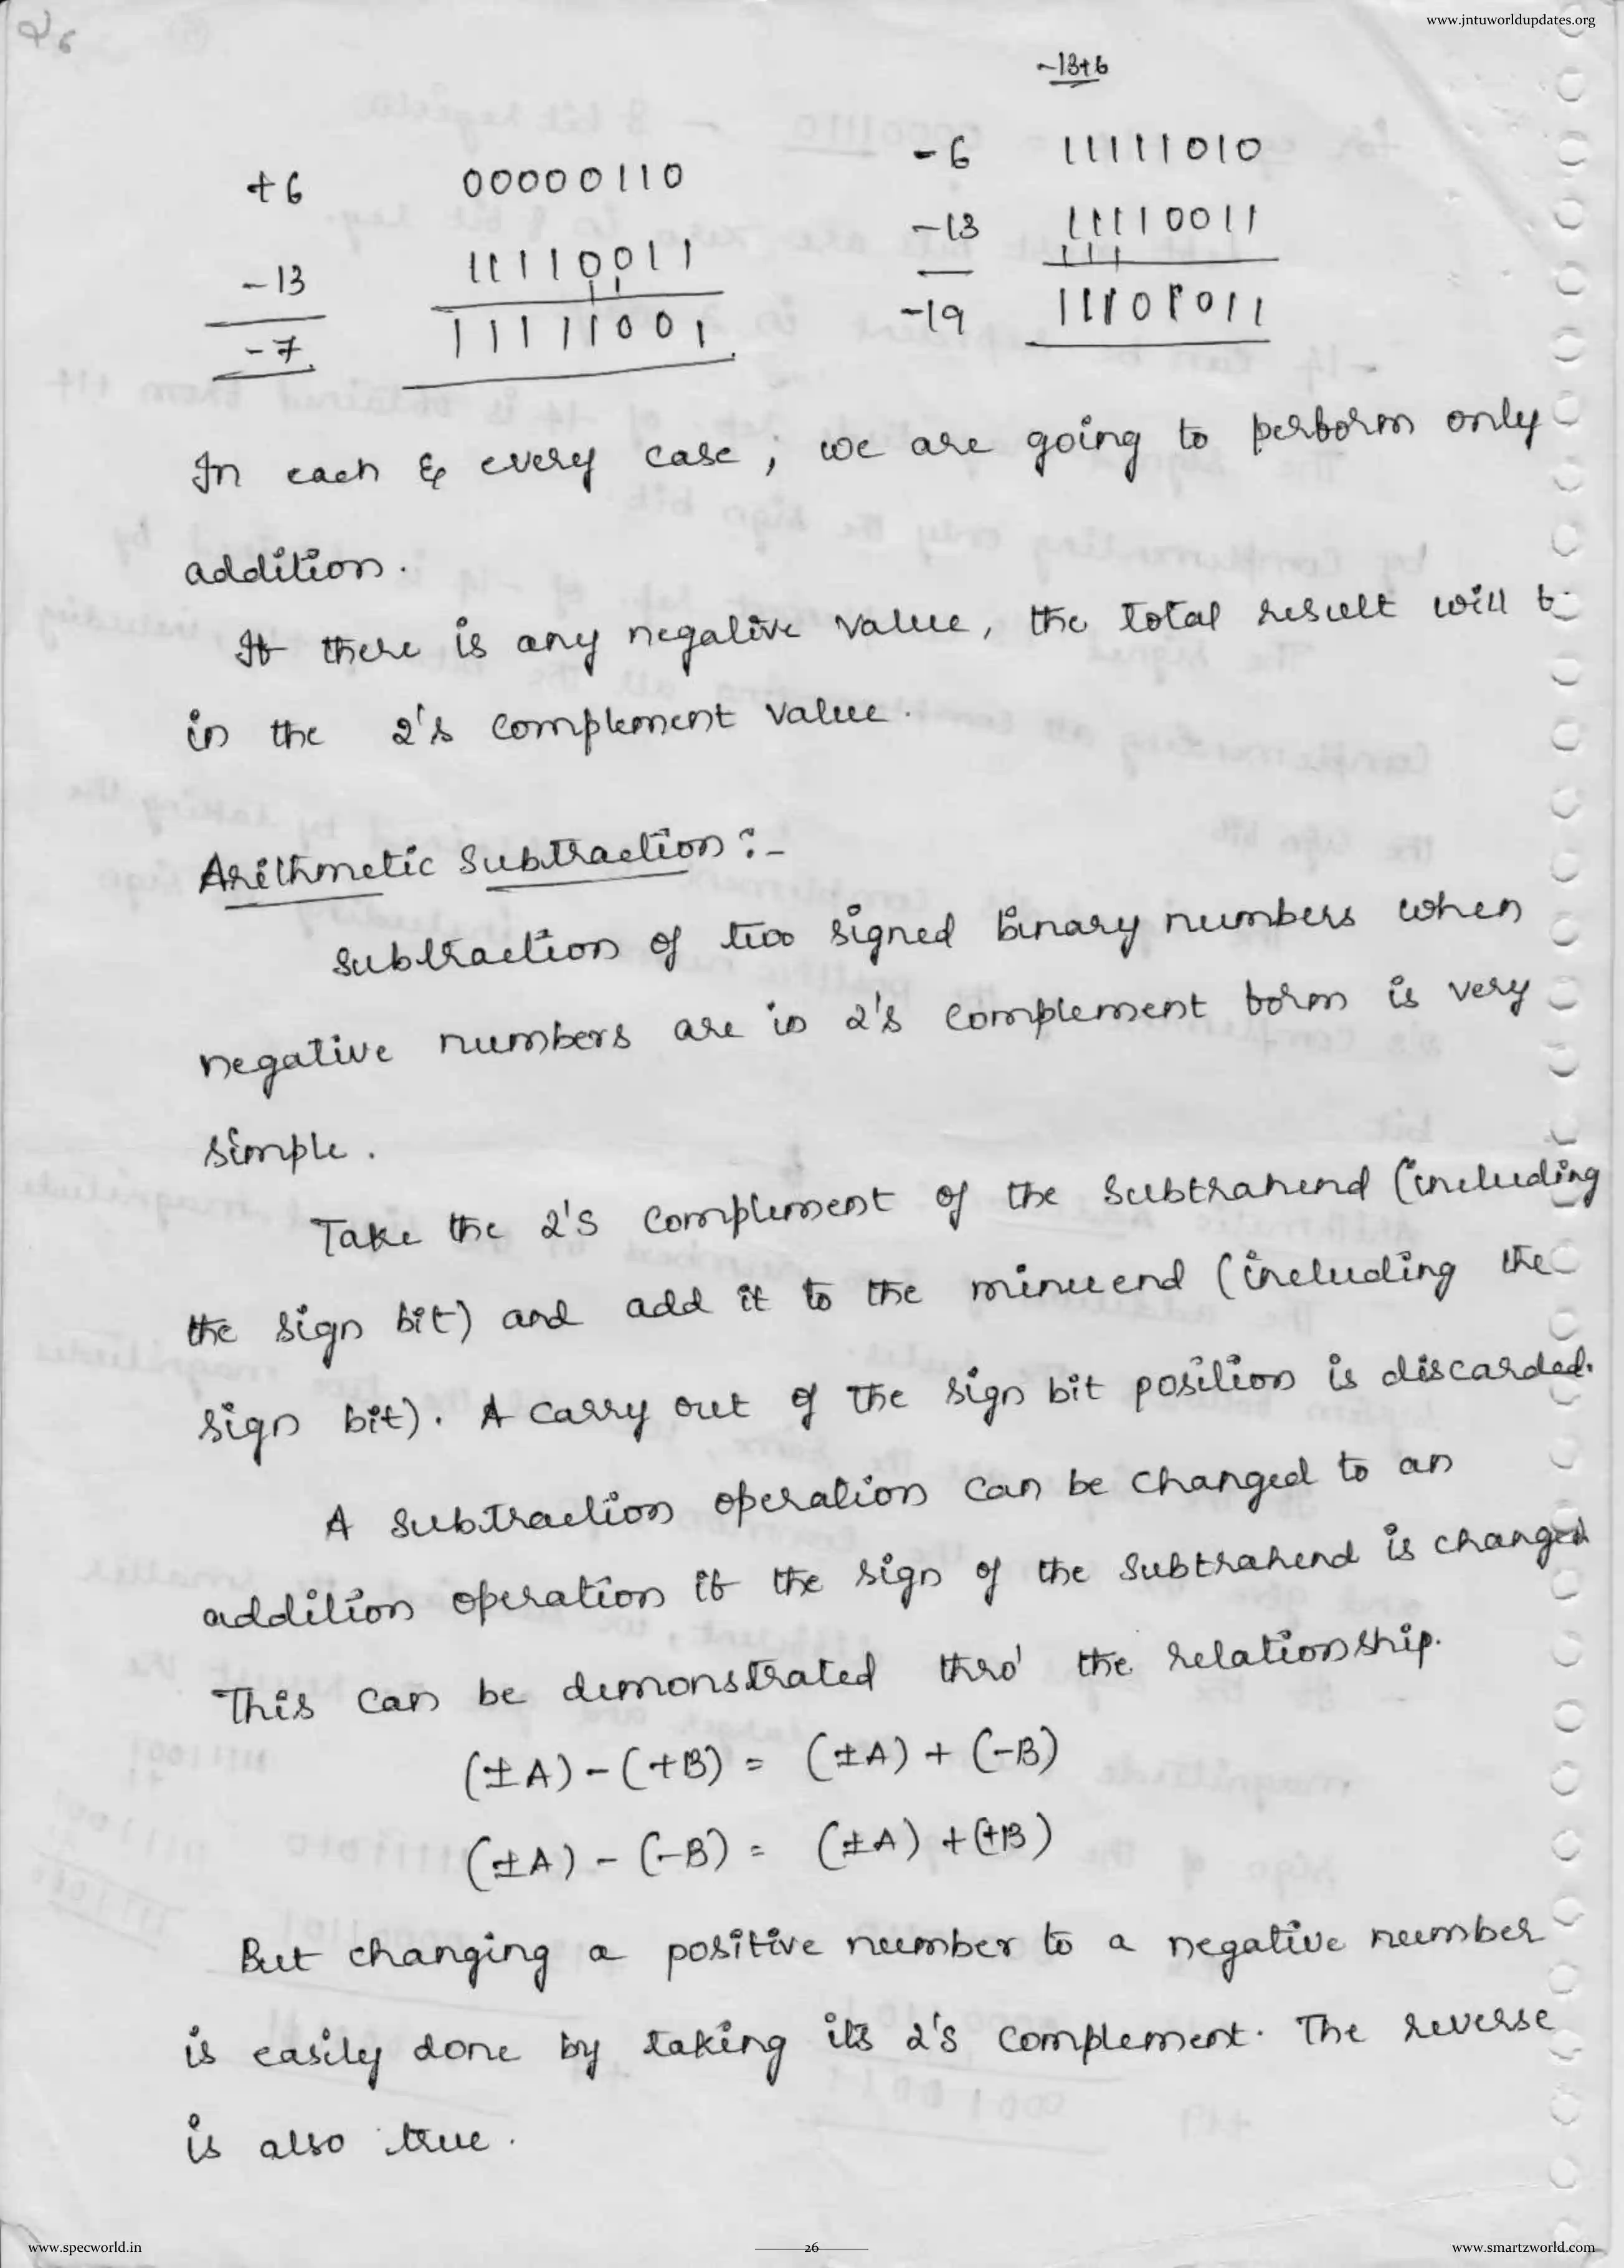 www.jntuworldupdates.org
26
-13+6
+6 00000110
-13 11110011
-7 11111001
-6 11111010
-13 11110011
-19 11101011
In each & every case, we are going to perform only
addition.
If there is any negative value, the total result will b
in the 2's complement value.
Arithmetic Subtraction :-
Subtraction of two signed binary numbers when
negative numbers are in 2's complement form is very
simple.
Take the 2's complement of the subtrahend (including
the sign bit) and add it to the minuend (including the
sign bit). A carry out of the sign bit position is discarded.
A subtraction operation can be changed to an
addition operation if the sign of the subtrahend is changed
This can be demonstrated thro' the relationship.
(±A) - (+B) = (±A) + (-B)
(±A) - (-B) = (±A) + (+B)
But changing a positive number to a negative number
is easily done by taking its 2's complement. The reverse
is also true.
www.specworld.in
26
www.smartzworld.com